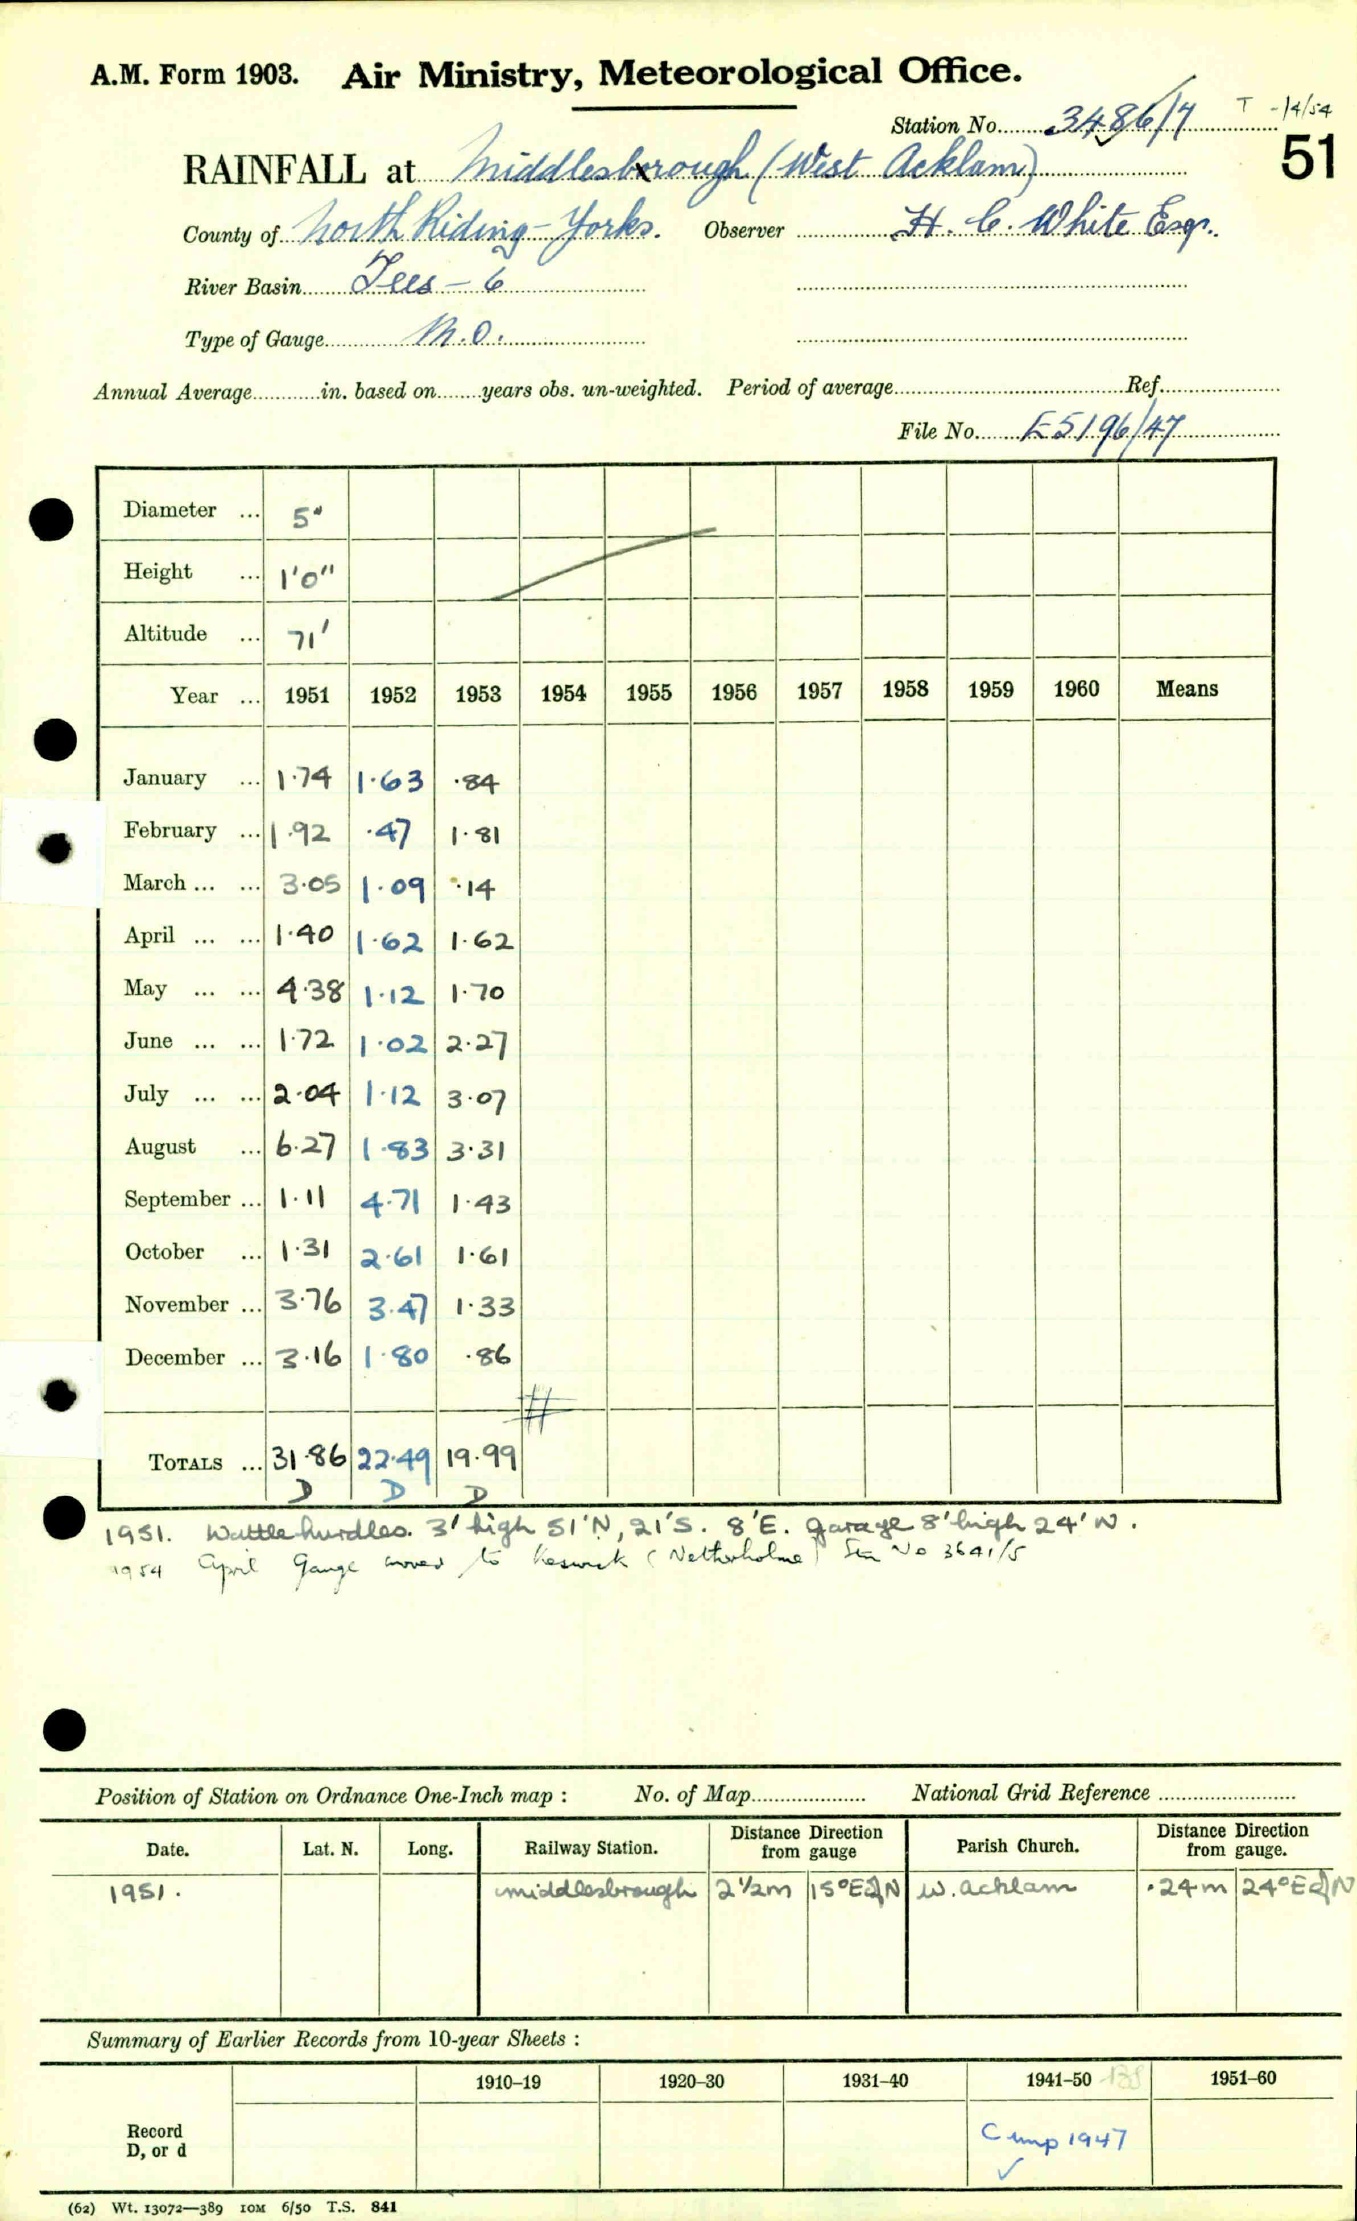 A.M. Form 1903. Air Ministry, Meteorological Office.
Station No. 3486/7 T -/4/54
51
RAINFALL at Middlesbrough (West Acklam)
County of North Riding - Yorks. Observer H. C. White Esqr.
River Basin Tees - 6
Type of Gauge M.O.
Annual Average in. based on years obs. un-weighted. Period of average Ref.
File No. E5196/47
Diameter ... 5"
Height ... 1'0"
Altitude ... 71'
Year ... 1951 1952 1953 1954 1955 1956 1957 1958 1959 1960 Means
January ... 1.74 1.63 .84
February ... 1.92 .47 1.81
March ... ... 3.05 1.09 .14
April ... ... 1.40 1.62 1.62
May ... ... 4.38 1.12 1.70
June ... ... 1.72 1.02 2.27
July ... ... 2.04 1.12 3.07
August ... 6.27 1.83 3.31
September ... 1.11 4.71 1.43
October ... 1.31 2.61 1.61
November ... 3.76 3.47 1.33
December ... 3.16 1.80 .86
TOTALS ... 31.86 22.49 19.99
D D D
1951. Wattle hurdles. 3' high 51'N, 21'S. 8'E. Garage 8' high 24'W.
1954 April Gauge moved to Keswick (Netherholme) Stn No 3641/5
Position of Station on Ordnance One-Inch map : No. of Map National Grid Reference
Date. Lat. N. Long. Railway Station. Distance Direction from gauge Parish Church. Distance Direction from gauge.
1951. Middlesbrough 2½m 15°E of N W. Acklam .24m 24°E of N
Summary of Earlier Records from 10-year Sheets :
1910–19 1920–30 1931–40 1941–50 1951–60
Record
D, or d
Cump 1947
(62) Wt. 13072—389 10M 6/50 T.S. 841